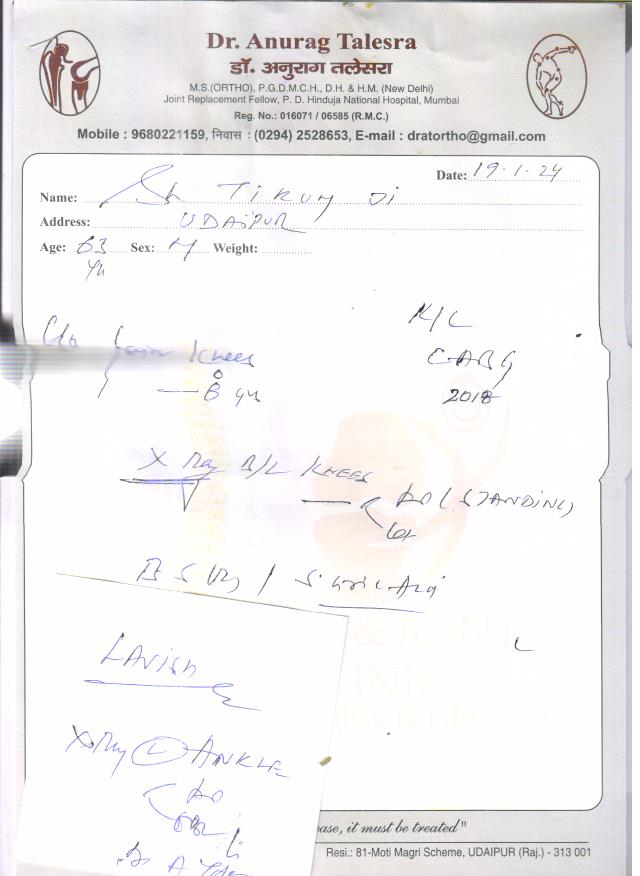 Dr. Anurag Talesra
डॉ. अनुराग तलेसरा
M.S.(ORTHO), P.G.D.M.C.H., D.H. & H.M. (New Delhi)
Joint Replacement Fellow, P. D. Hinduja National Hospital, Mumbai
Reg. No.: 016071 / 06585 (R.M.C.)
Mobile : 9680221159, निवास : (0294) 2528653, E-mail : dratortho@gmail.com
Date: 19.1.24
Name: Sh TIKUM JI
Address: UDAIPUR
Age: 63 Yrs Sex: M Weight:
K/C
C/o Pain Knees
CABG
2018
X Ray B/L KNEES
AP (STANDING)
Lat
& JOINT
LINIC
ility is Life
LAVISH
X Ray L ANKLE
AP
ease, it must be treated"
Resi.: 81-Moti Magri Scheme, UDAIPUR (Raj.) - 313 001